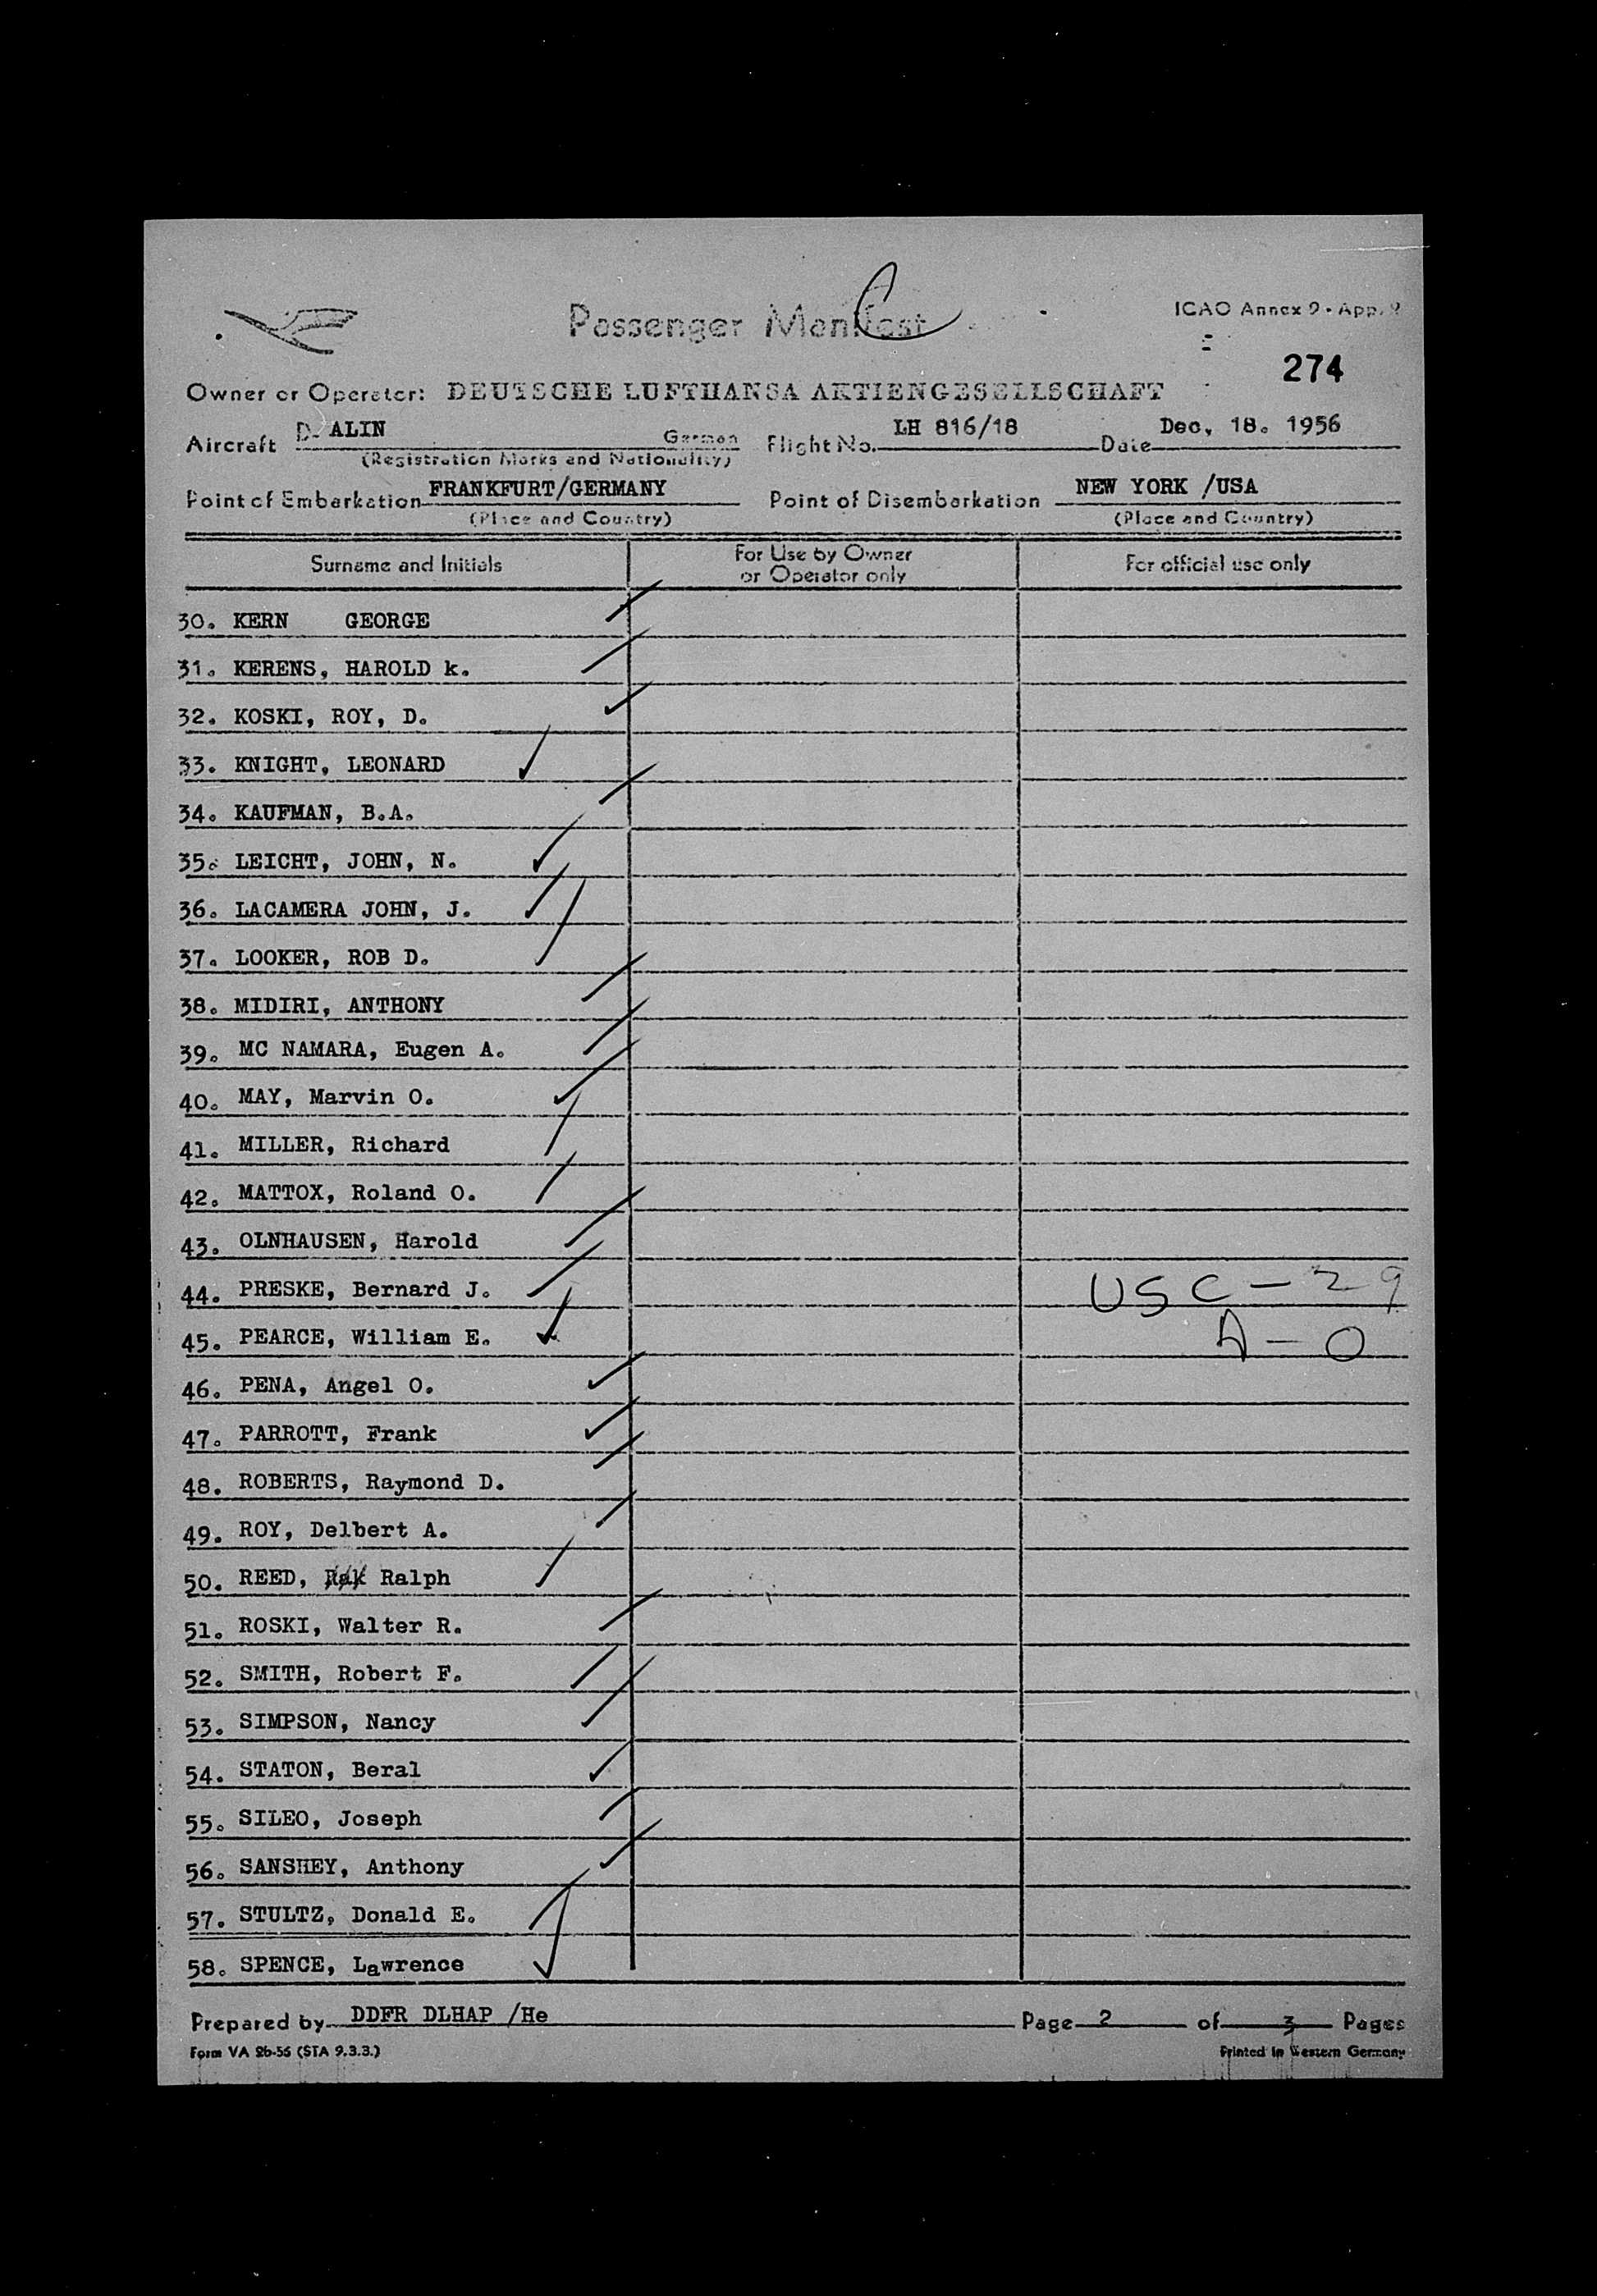 Passenger Manifest
ICAO Annex 9 - App. 2
274
Owner or Operator: DEUTSCHE LUFTHANSA AKTIENGESELLSCHAFT
Aircraft D- ALIN German Flight No. LH 816/18 Date Dec. 18. 1956
(Registration Marks and Nationality)
Point of Embarkation FRANKFURT/GERMANY Point of Disembarkation NEW YORK /USA
(Place and Country) (Place and Country)
Surname and Initials For Use by Owner or Operator only For official use only
30. KERN GEORGE
31. KERENS, HAROLD k.
32. KOSKI, ROY, D.
33. KNIGHT, LEONARD
34. KAUFMAN, B.A.
35. LEICHT, JOHN, N.
36. LACAMERA JOHN, J.
37. LOOKER, ROB D.
38. MIDIRI, ANTHONY
39. MC NAMARA, Eugen A.
40. MAY, Marvin O.
41. MILLER, Richard
42. MATTOX, Roland O.
43. OLNHAUSEN, Harold
44. PRESKE, Bernard J. USC - 29
45. PEARCE, William E. A - 0
46. PENA, Angel O.
47. PARROTT, Frank
48. ROBERTS, Raymond D.
49. ROY, Delbert A.
50. REED, Ralph
51. ROSKI, Walter R.
52. SMITH, Robert F.
53. SIMPSON, Nancy
54. STATON, Beral
55. SILEO, Joseph
56. SANSHEY, Anthony
57. STULTZ, Donald E.
58. SPENCE, Lawrence
Prepared by DDFR DLHAP /He Page 2 of 3 Pages
Form VA 2b-56 (STA 9.3.3.) Printed in Western Germany